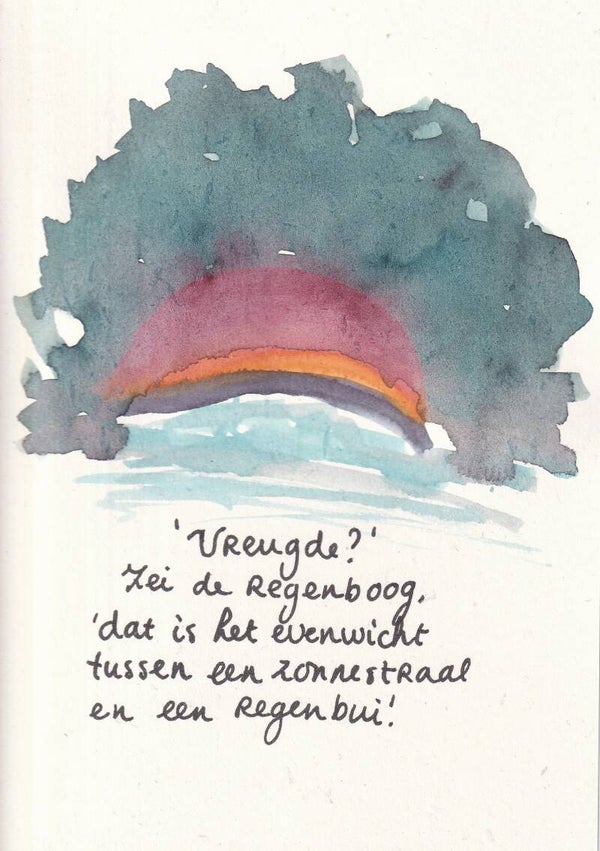 'Vreugde?'
Zei de Regenboog,
'dat is het evenwicht
tussen een zonnestraal
en een Regenbui!'